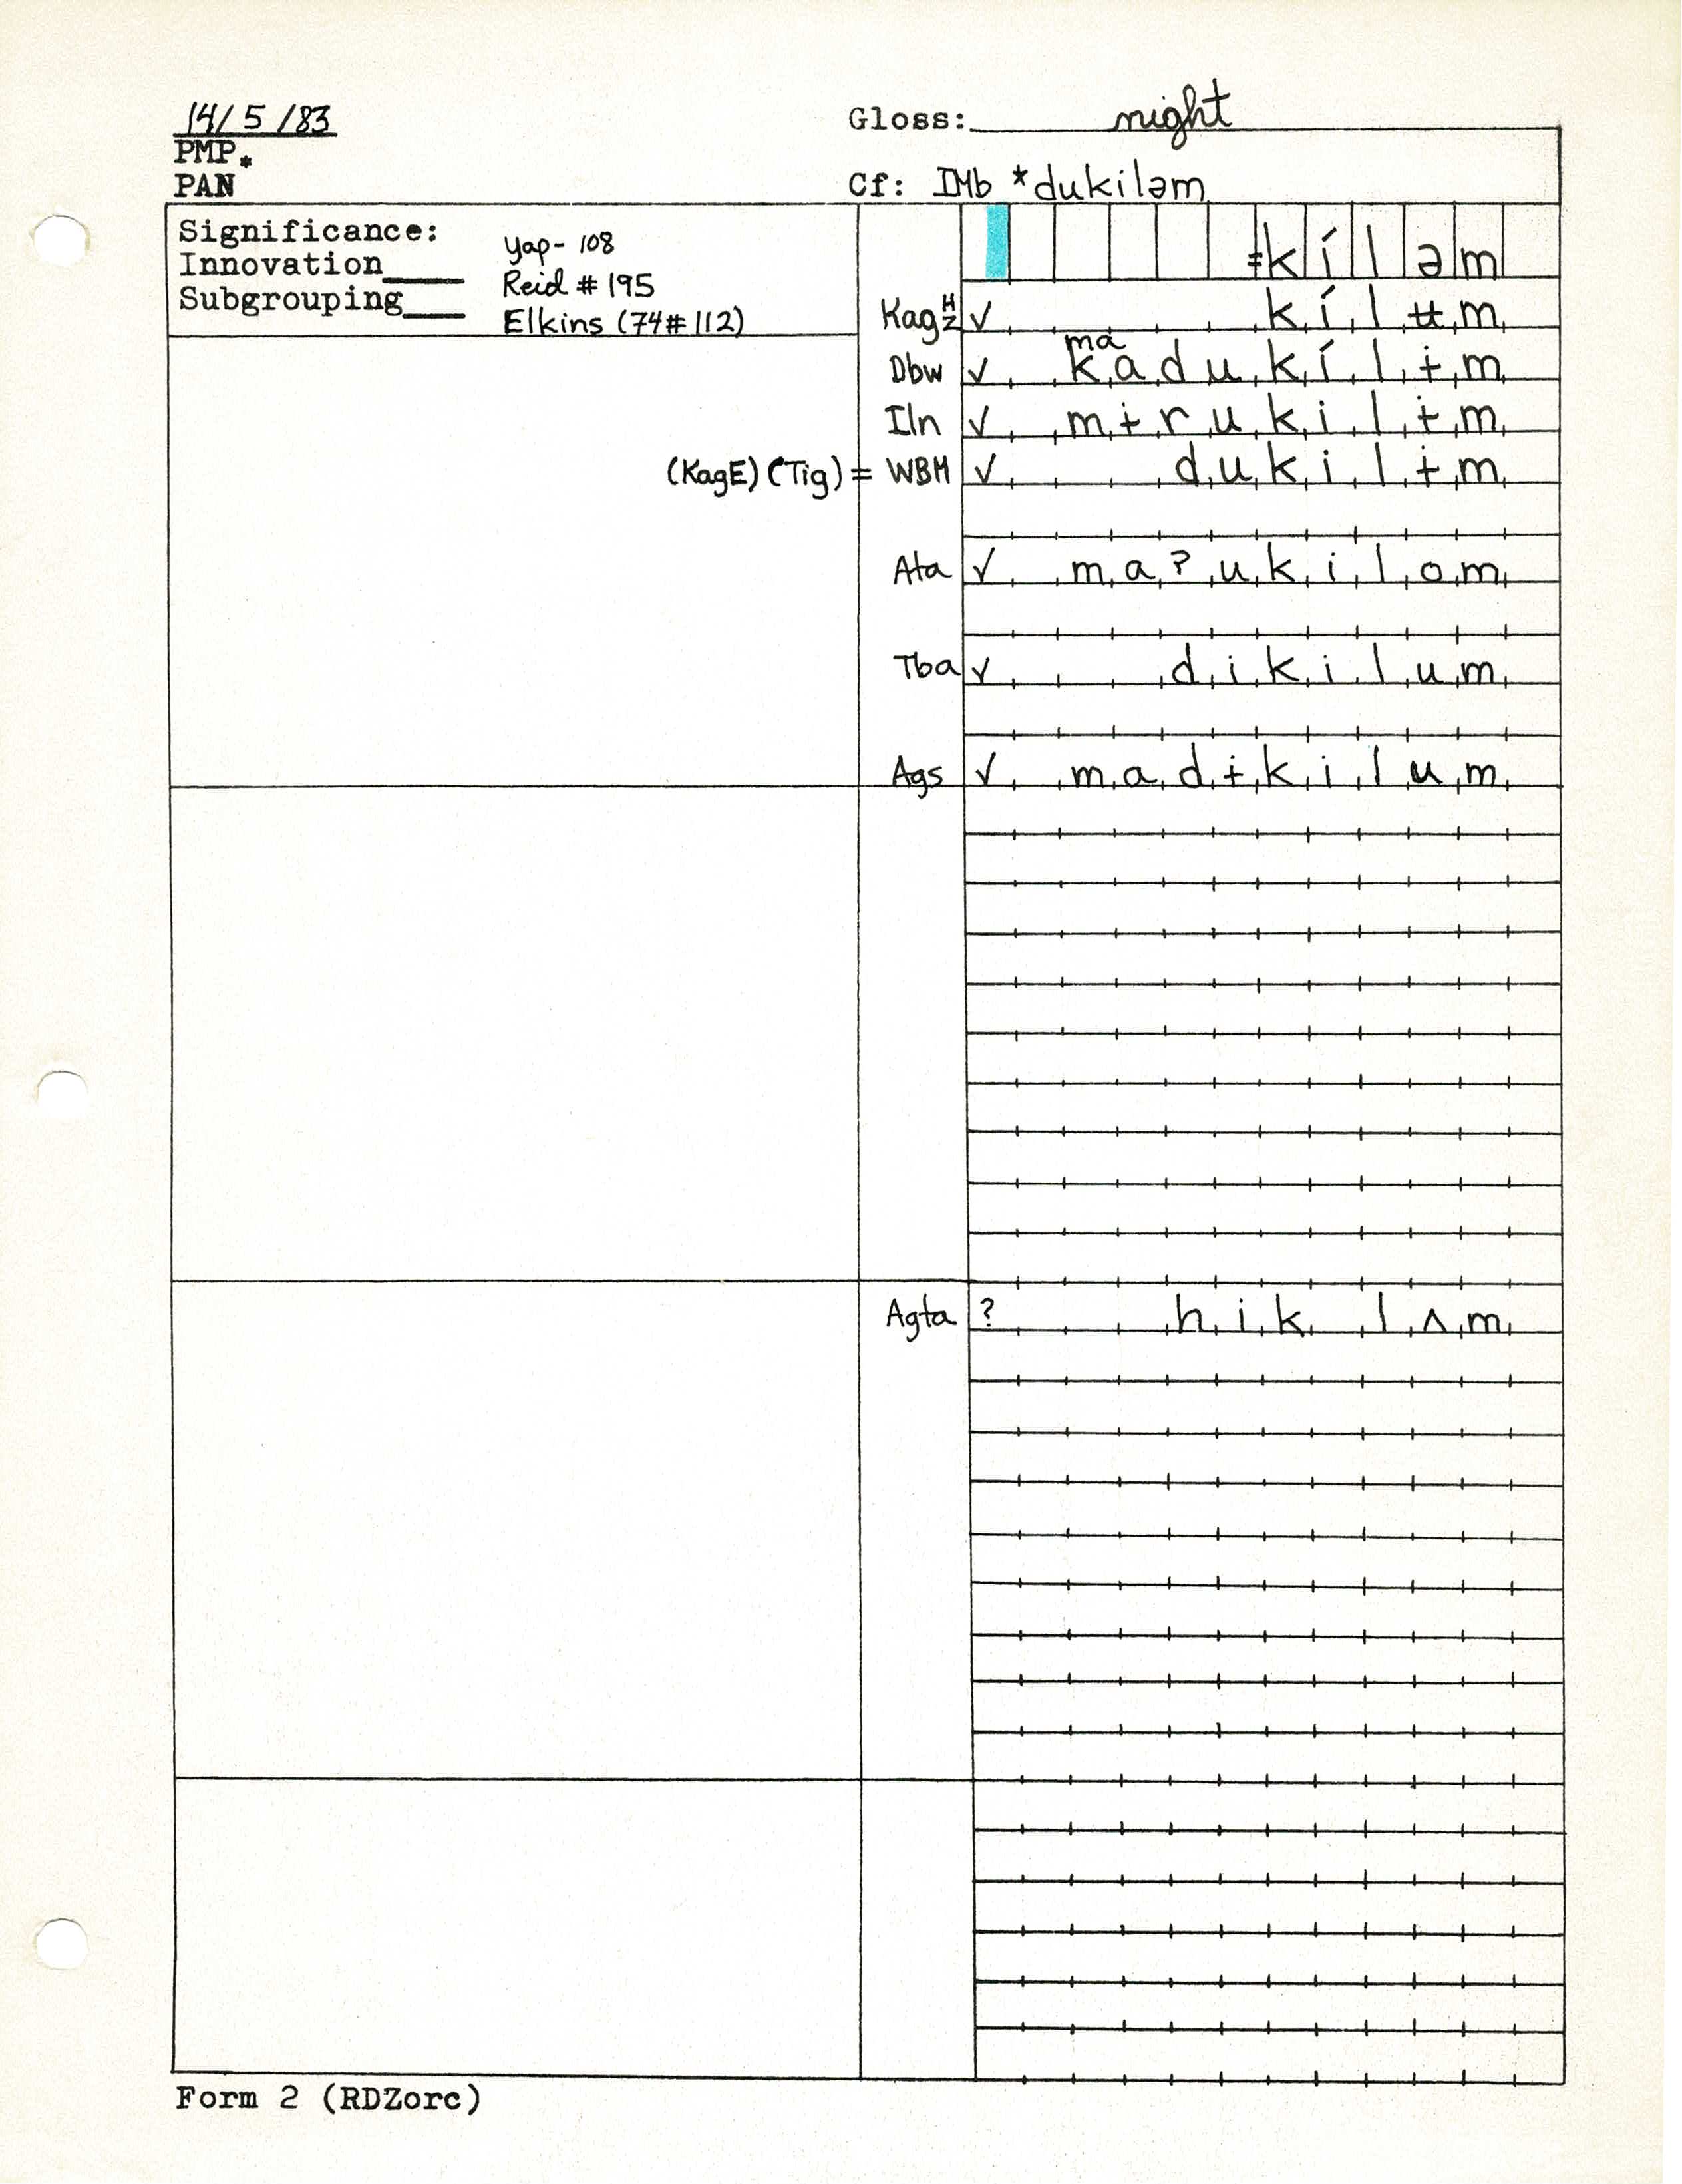 14/5/83
Gloss: night
PMP*
PAN
Cf: IMb *dukiləm
Significance:
Innovation____
Subgrouping___
Yap-108
Reid #195
Elkins (74#112)
=kíləm
Kag H Z ✓ kílʉm
ma
Dbw ✓ kadukílɨm
Iln ✓ mɨrukilɨm
(KagE) (Tig) = WBM ✓ dukilɨm
Ata ✓ maʔukilom
Tba ✓ dikilum
Ags ✓ madɨkilum
Agta ? hik lʌm
Form 2 (RDZorc)